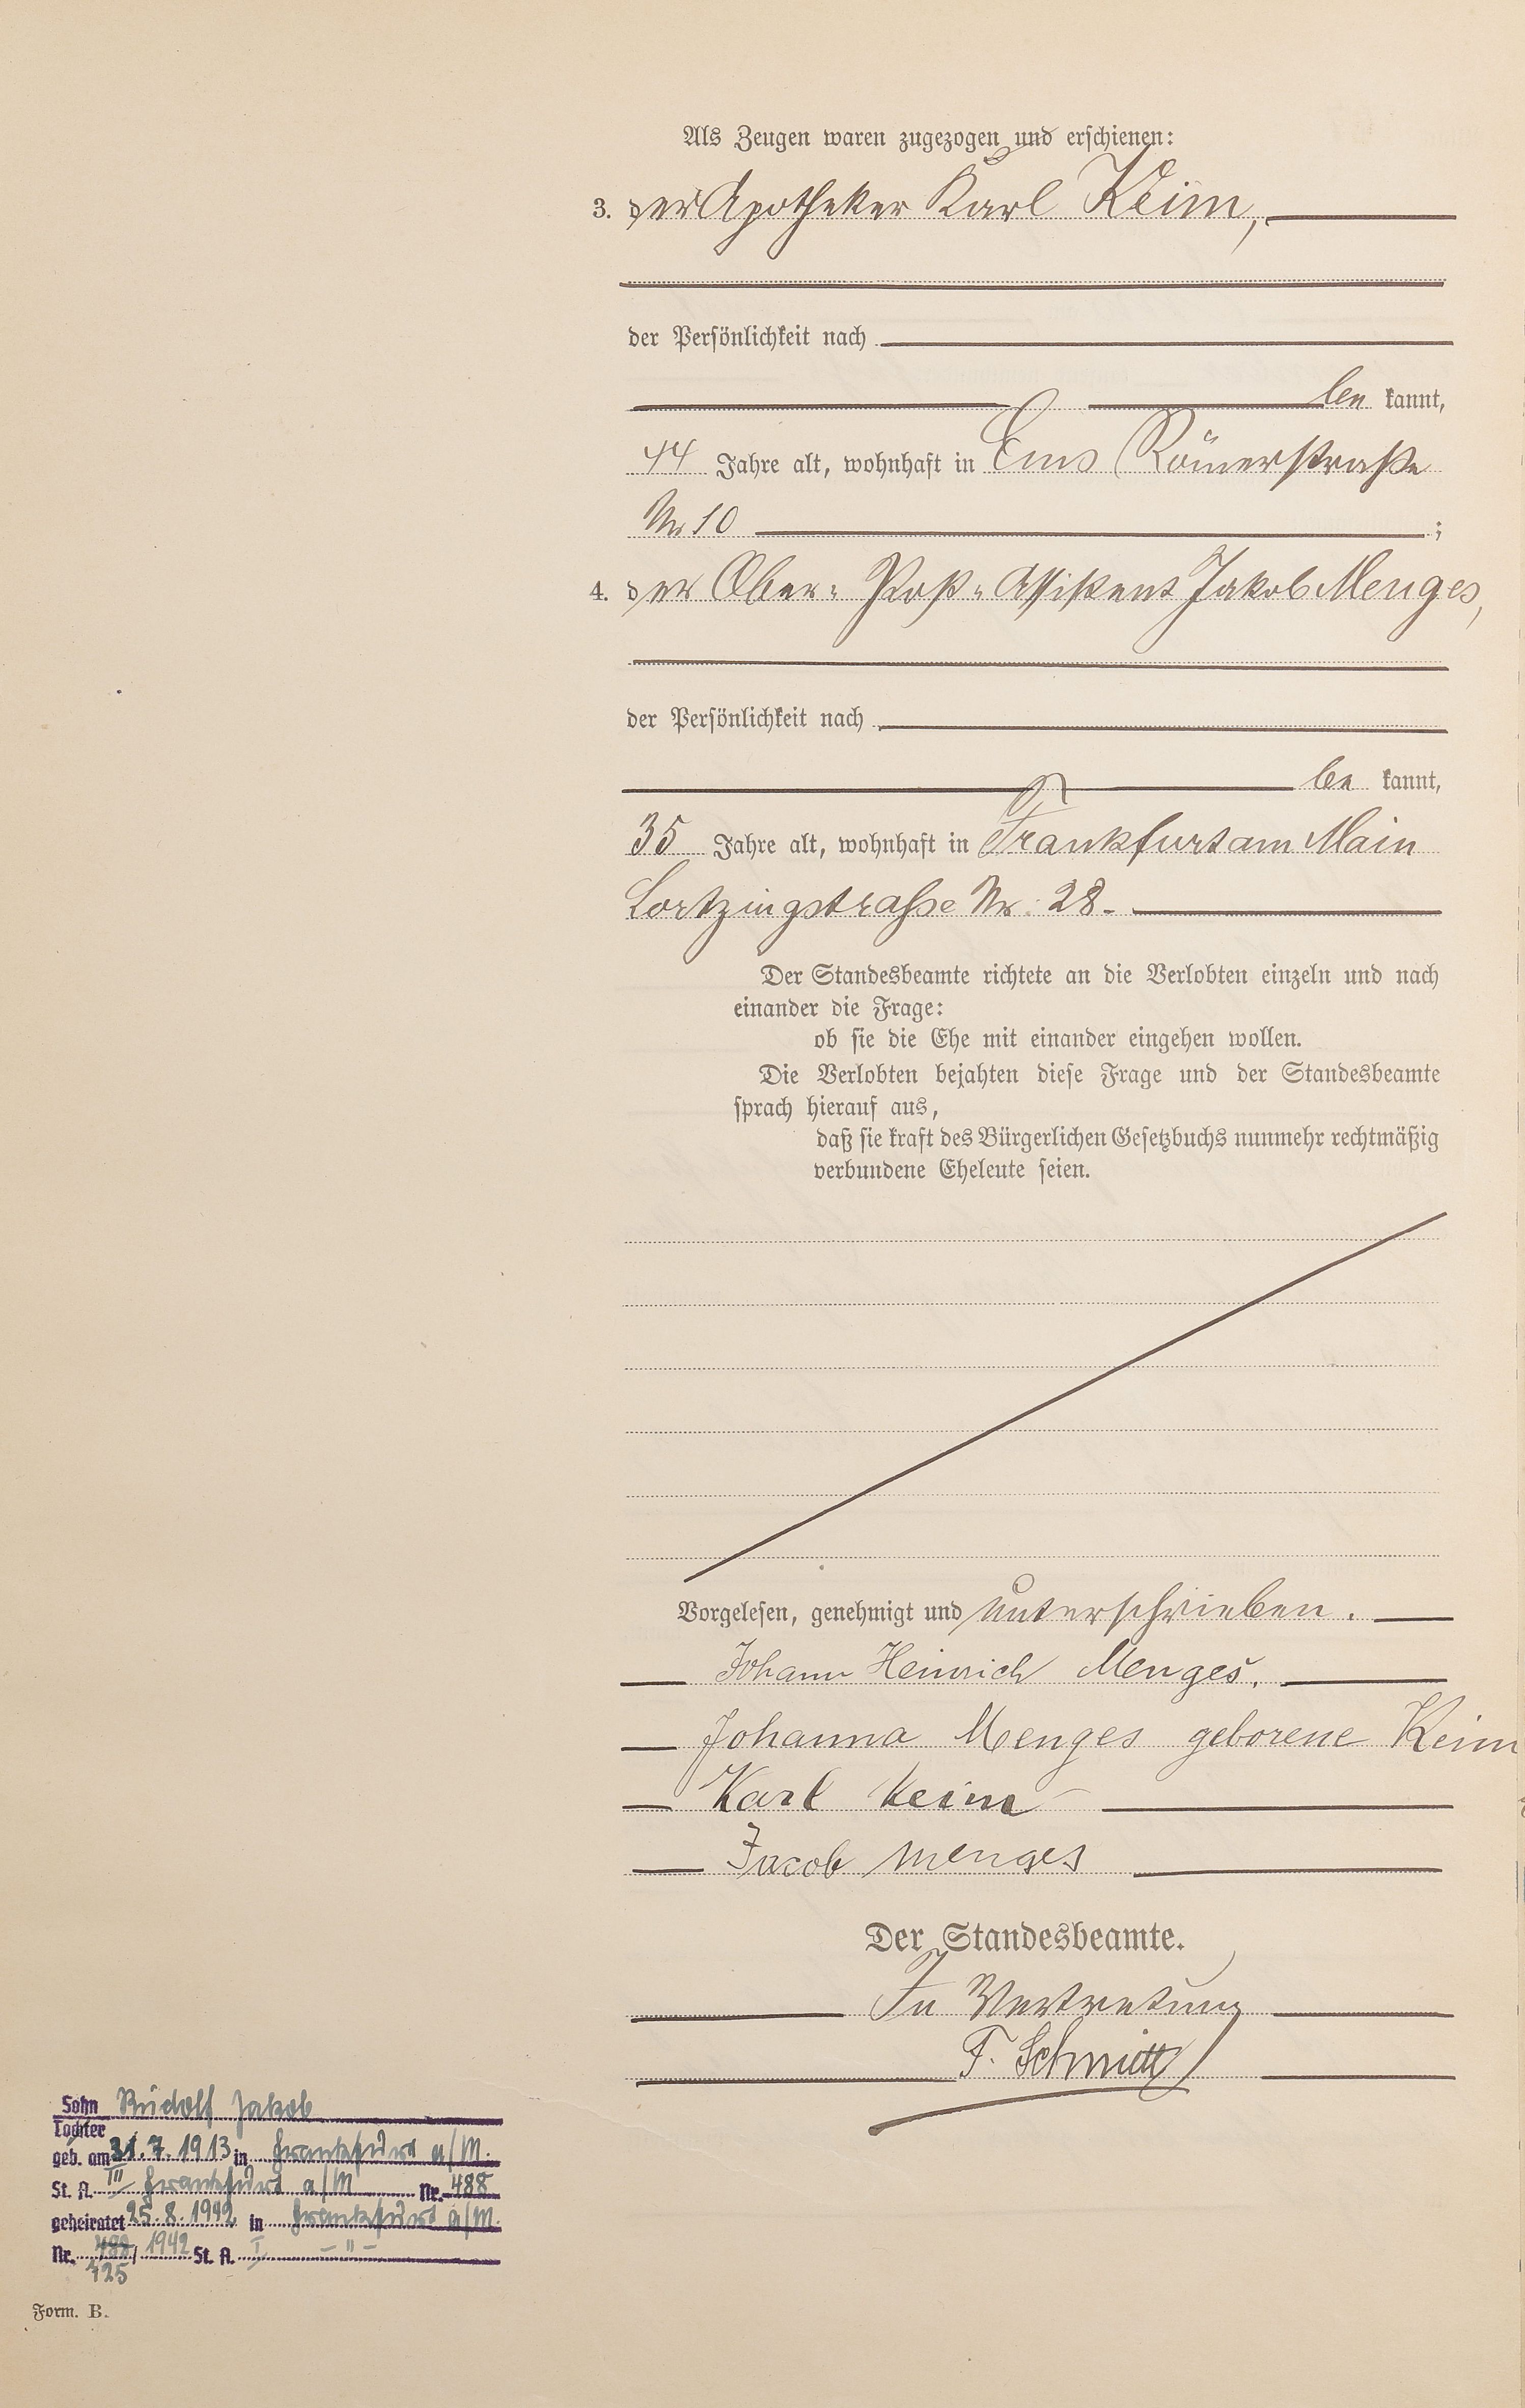 Als Zeugen waren zugezogen und erschienen:
3. der Apotheker Karl Keim,
der Persönlichkeit nach
be kannt,
44 Jahre alt, wohnhaft in Ems Römerstraße
Nr 10 ;
4. der Ober-Post-Assistent Jakob Menges,
der Persönlichkeit nach
be kannt,
35 Jahre alt, wohnhaft in Frankfurt am Main
Lortzingstrasse Nr. 28.
Der Standesbeamte richtete an die Verlobten einzeln und nach
einander die Frage:
ob sie die Ehe mit einander eingehen wollen.
Die Verlobten bejahten diese Frage und der Standesbeamte
sprach hierauf aus,
daß sie kraft des Bürgerlichen Gesetzbuchs nunmehr rechtmäßig
verbundene Eheleute seien.
Vorgelesen, genehmigt und unterschrieben.
Johann Heinrich Menges.
Johanna Menges geborene Keim
Karl Keim
Jacob Menges
Der Standesbeamte.
In Vertretung
F. Schmitt
Sohn Rudolf Jakob
Tochter
geb. am 31.7.1913 in Frankfurt a/M.
St. A. III Frankfurt a/M Nr. 488
geheiratet 25.8.1942 in Frankfurt a/M.
Nr. 488 / 1942 St. A. I – " –
725
Form. B.